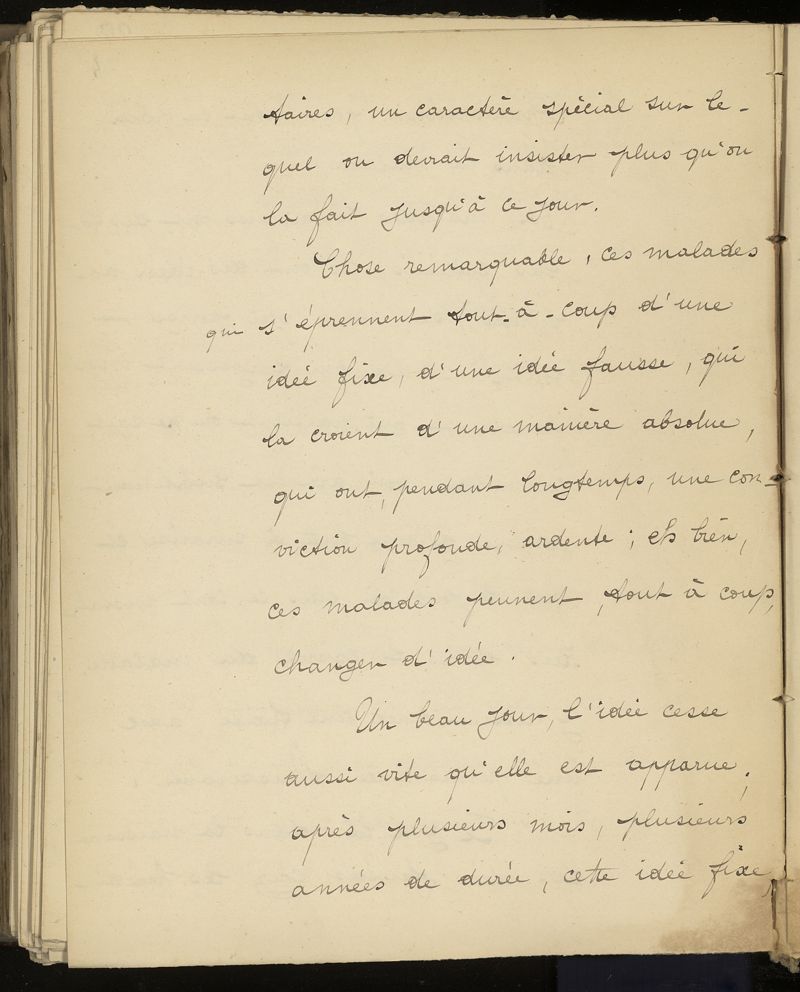 taires, un caractère spécial sur le-
quel on devrait insister plus qu'on
la fait jusqu'à ce jour.
Chose remarquable, ces malades
qui s'éprennent tout-à-coup d'une
idée fixe, d'une idée fausse, qui
la croient d'une manière absolue,
qui ont, pendant longtemps, une con-
viction profonde, ardente; eh bien,
ces malades peuvent, tout à coup,
changer d'idée.
Un beau jour, l'idée cesse
aussi vite qu'elle est apparue;
après plusieurs mois, plusieurs
années de durée, cette idée fixe,